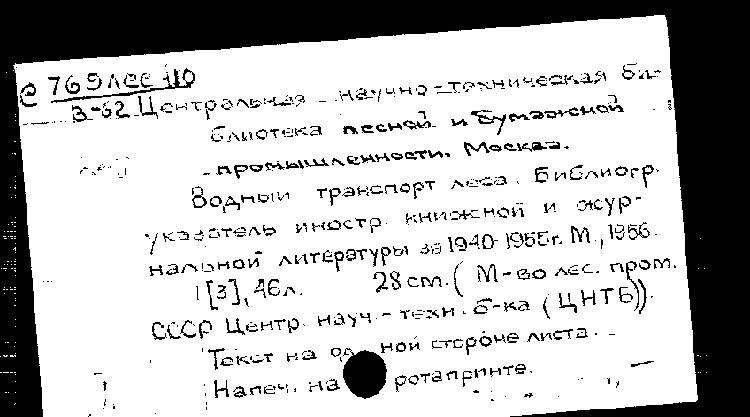 С 769 лес 110
В-62 Центральная научно-техническая би-
блиотека лесной и бумажной
промышленности. Москва.
Водный транспорт леса. Библиогр.
указатель иностр. книжной и жур-
нальной литературы за 1940-1955г. М., 1956.
1[3], 46л. 28 см. (М-во лес. пром.
СССР Центр. науч.-техн. б-ка (ЦНТБ)).
Текст на од ной стороне листа.
Напеч. на ротапринте.